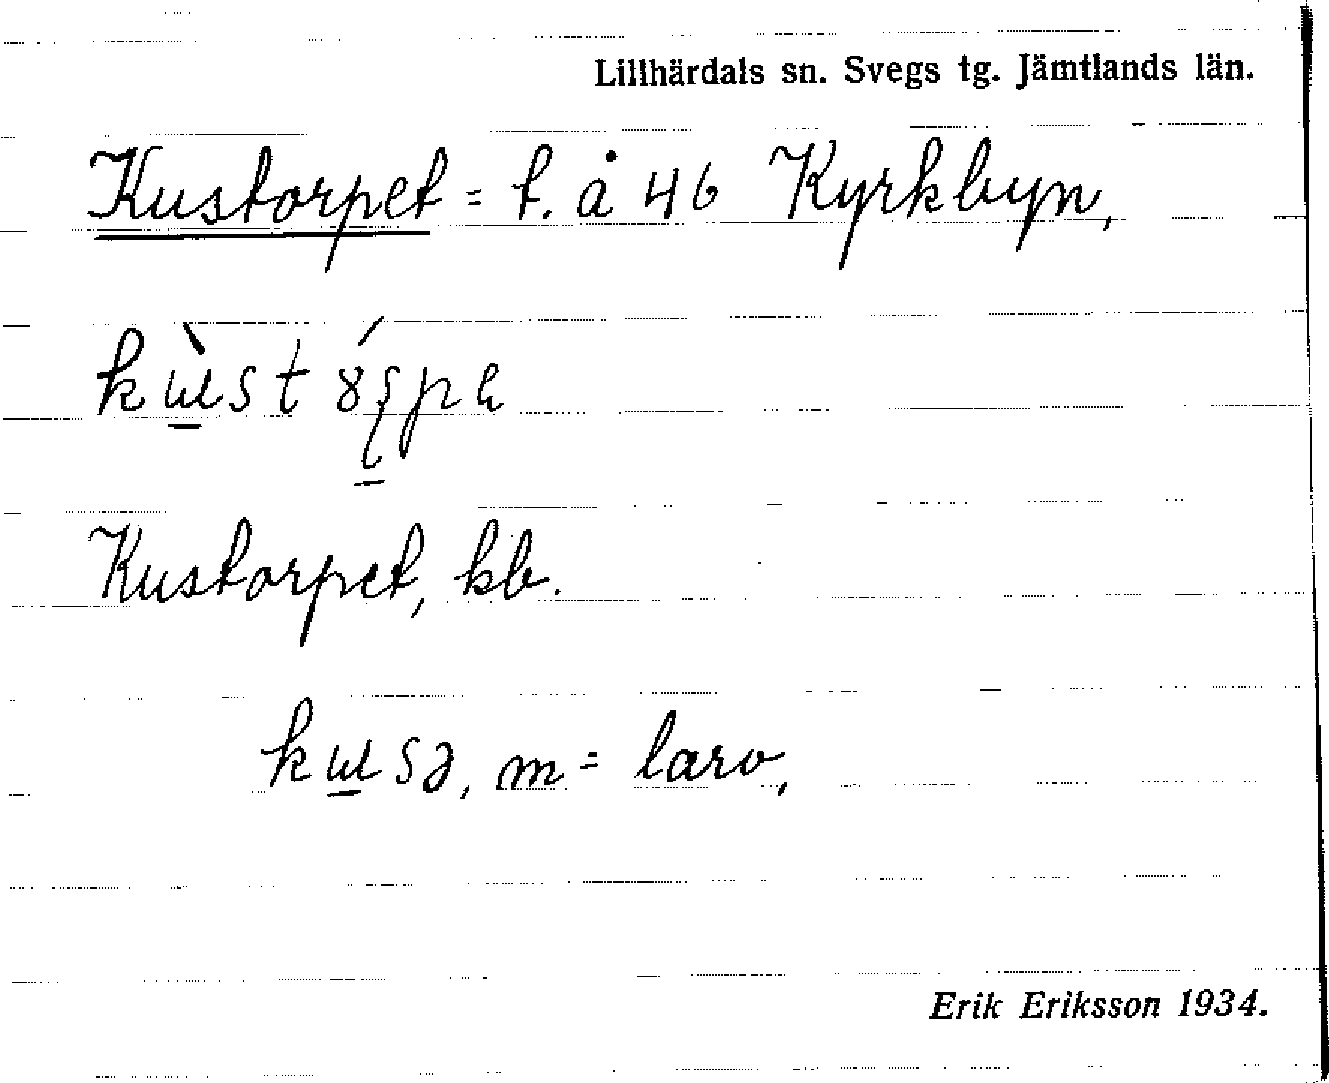 Lillhärdals sn. Svegs tg. Jämtlands län.
Kustorpet = t. å 46 Kyrkbyn,
Kustorpet, kb.
m = larv,
Erik Eriksson 1934.